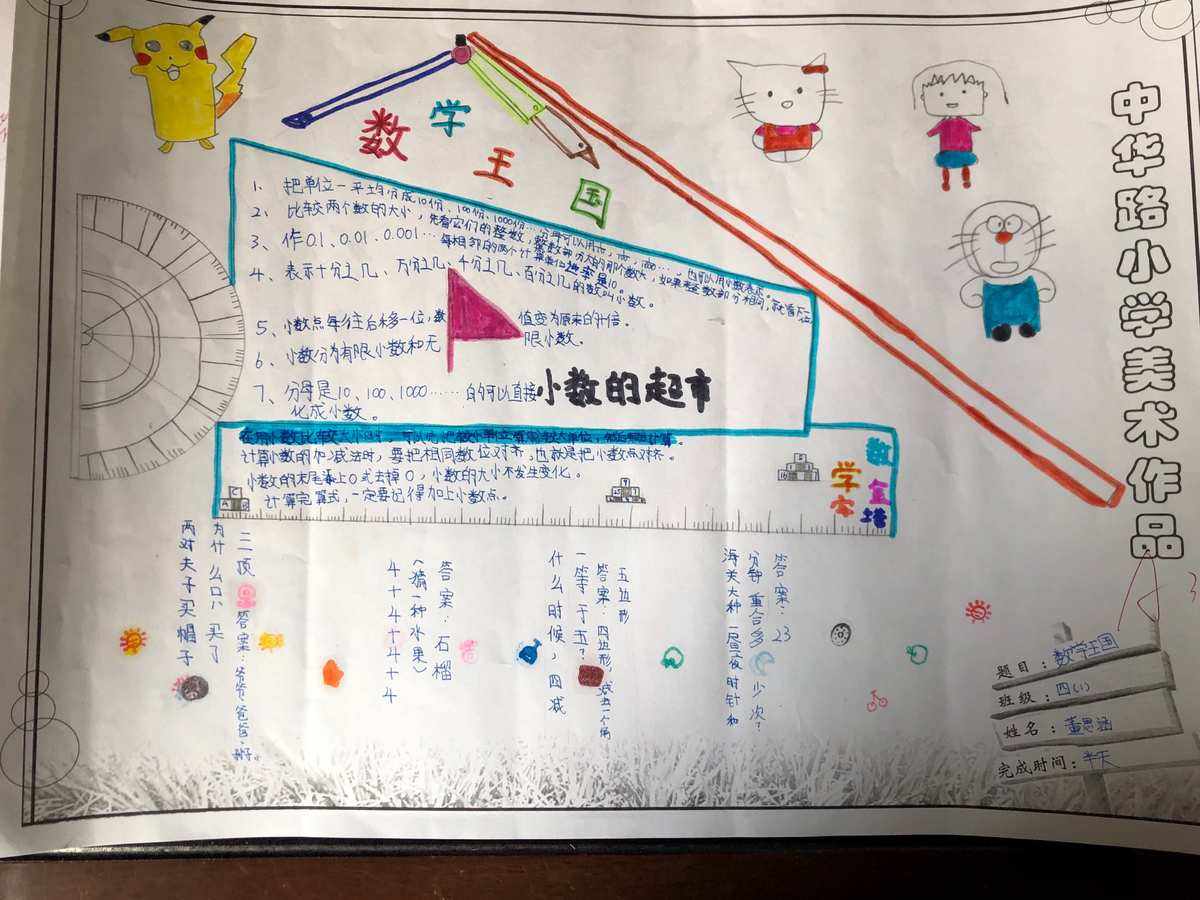 中华路小学美术作品
数学王国
1、把单位一平均分成10份、100份、1000份…分母可以用10，100，1000…，也可以用小数表示。
2、比较两个数的大小，先看它们的整数，整数部分大的那个数大，如果整数部分相同，就看下一位
3、作0.1、0.01、0.001…每相邻的两个计算单位进率是10。
4、表示十分之几、万分之几、千分之几、百分之几的数叫小数。
5、小数点每往后移一位，数值变为原来的十倍。
6、小数分为有限小数和无限小数。
7、分母是10、100、1000……的可以直接
化成小数。
小数的超市
计算小数的加减法时，要把相同数位对齐，也就是把小数点对齐。
小数的末尾添上0或去掉0，小数的大小不发生变化。
计算完算式，一定要记得加上小数点。
数学金字塔
两对夫子买帽子
为什么只买了
三顶
答案：爷爷、爸爸、孙子。
4+4+4+4
（猜一种水果）
答案：石榴
什么时候，四减
一等于五？
答案：四边形，减去一个角，
五边形
海关大种一昼夜时针和
分钟重合多少次？
答案：23
题目：数学王国
班级：四(1)
姓名：董思涵
完成时间：半天